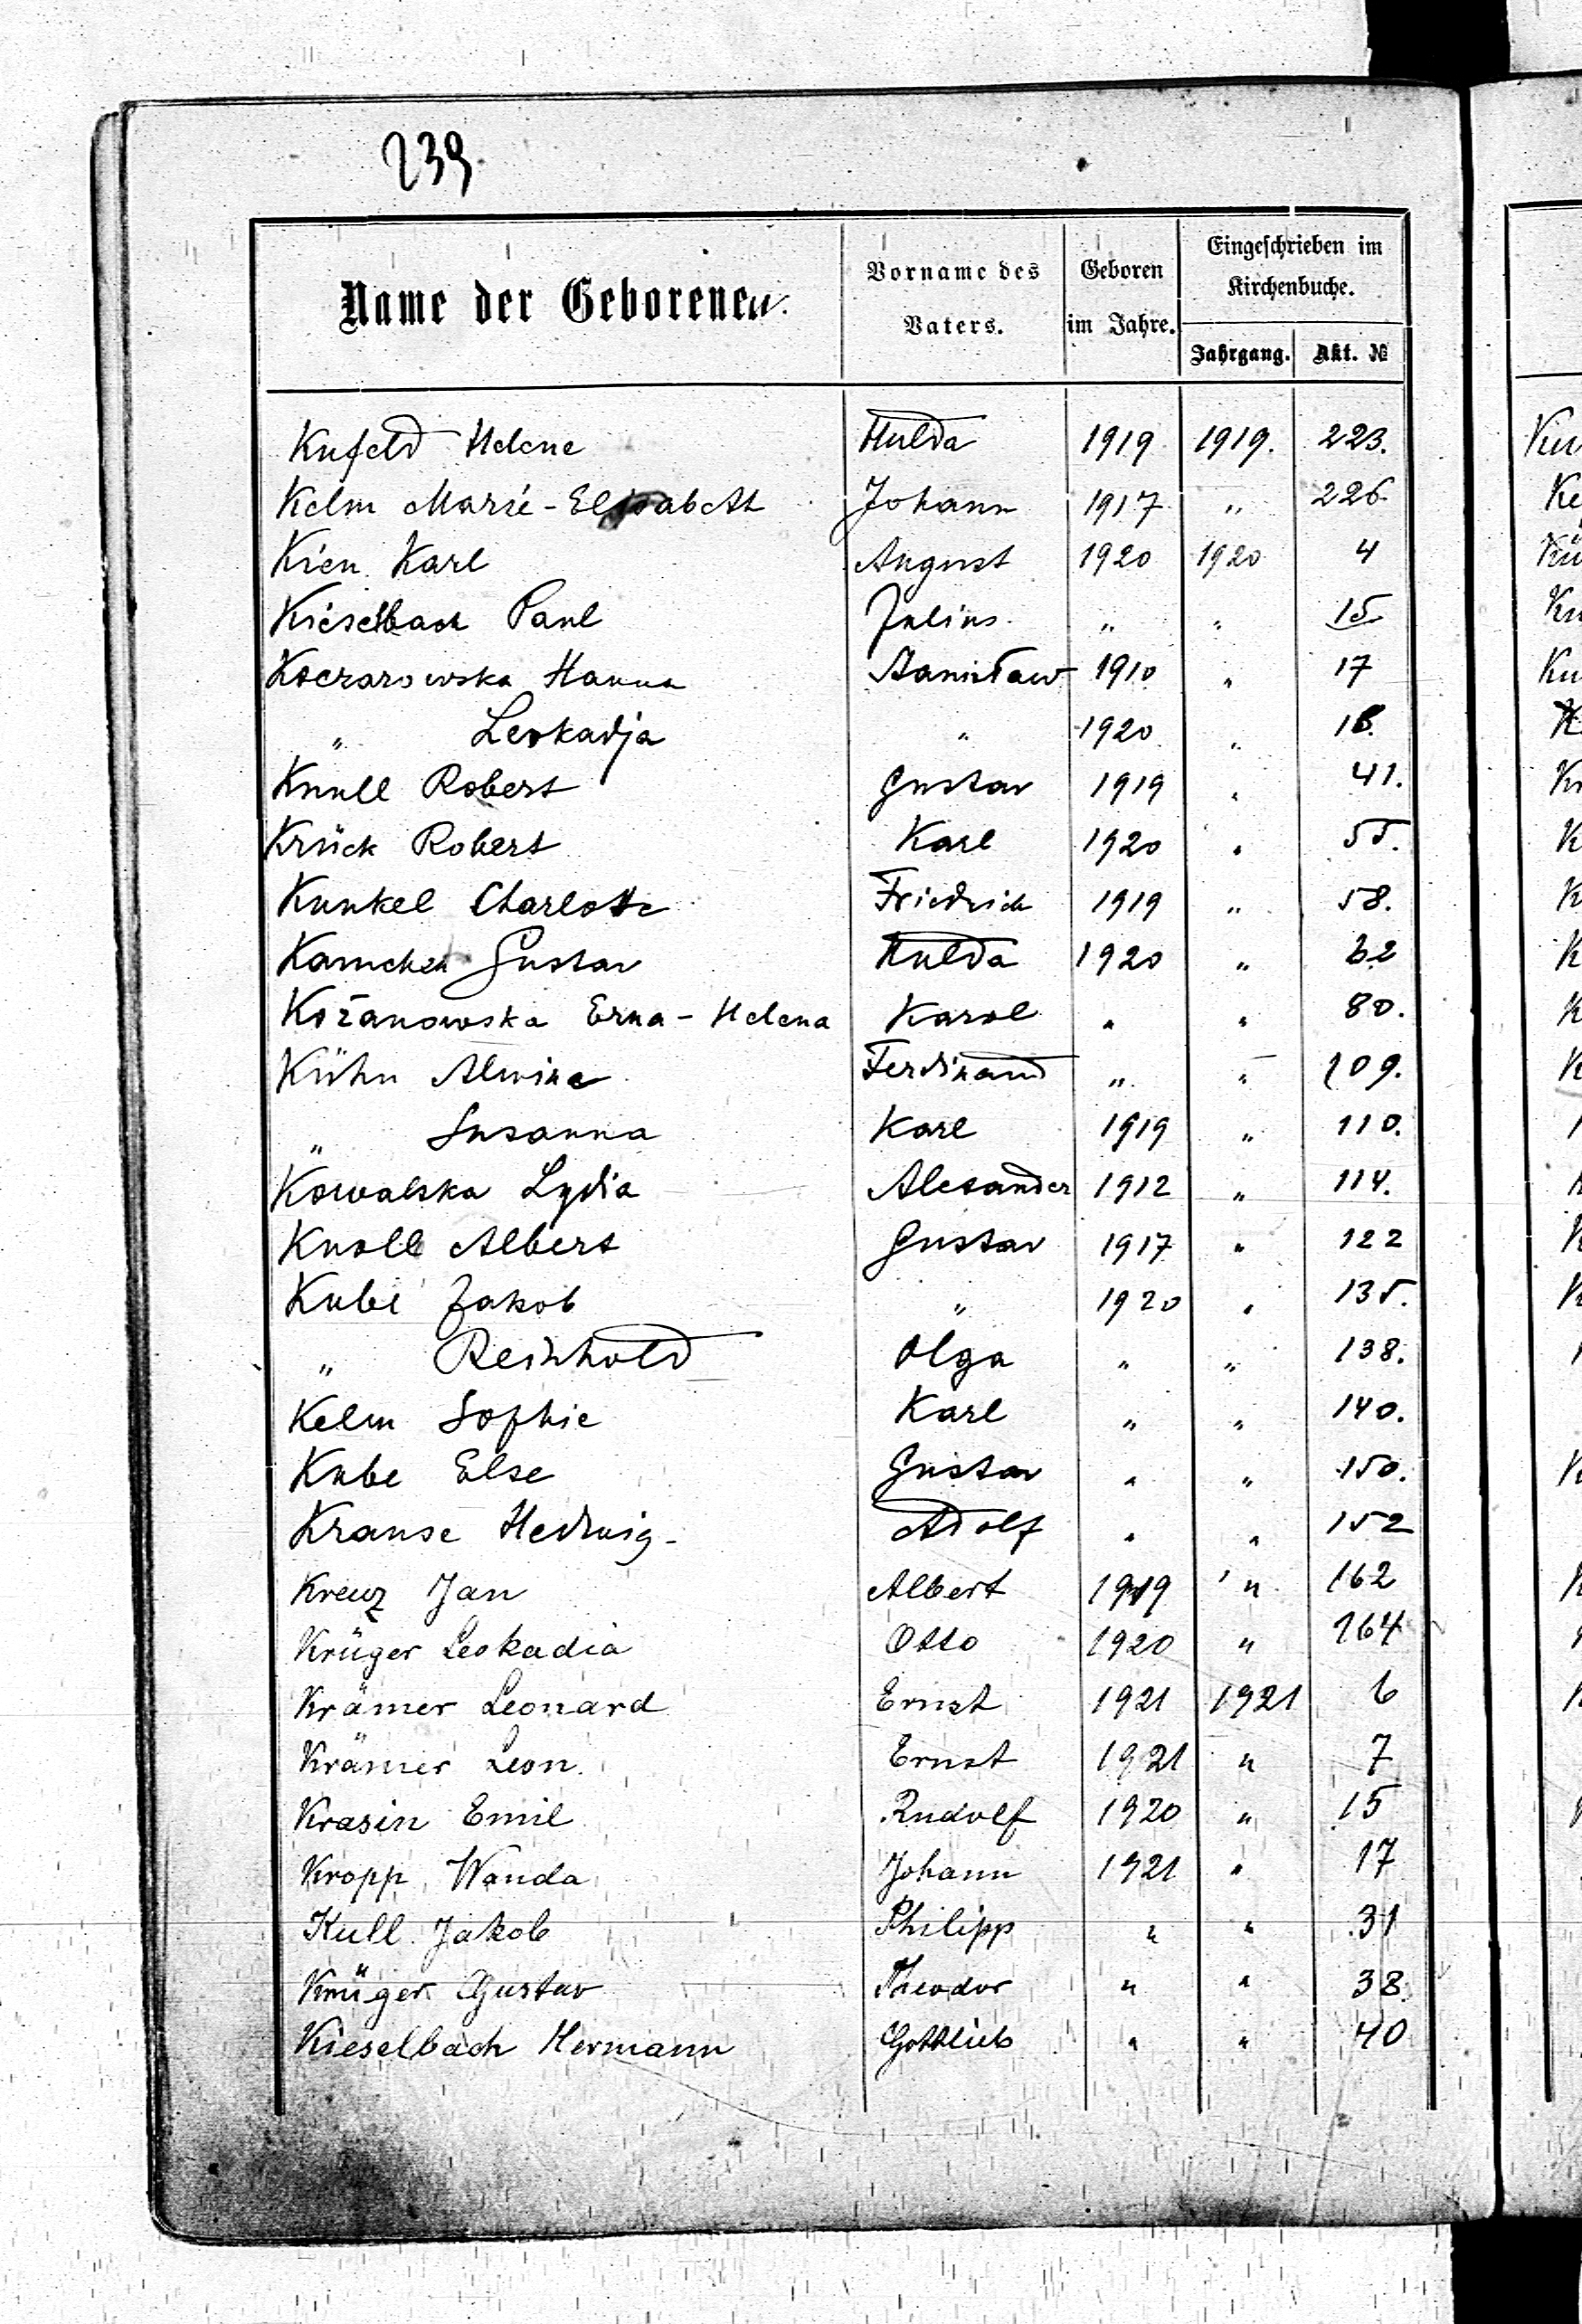 239.
Name der Geborenen.
Vorname des Vaters.
Geboren im Jahre.
Eingeschrieben im Kirchenbuche.
Jahrgang. Akt. №
Kufeld Helene Hulda 1919 1919. 223.
Kelm Marie-Elisabeth Johann 1917 " 226.
Kien Karl August 1920 1920 4
Kieselbach Paul Julius " " 15.
Koczarowska Hanna Stanisław 1910 " 17
" Leokadja " 1920 " 18.
Knull Robert Gustav 1919 " 41.
Krück Robert Karl 1920 " 55.
Kunkel Charlotte Friedrich 1919 " 58.
Gustav Hulda 1920 " 62
Kożanowska Erna-Helena Karol " " 80.
Kühn Alwine Ferdinand " " 109.
" Susanna Karl 1919 " 110.
Kowalska Lydia Alexander 1912 " 114.
Knoll Albert Gustav 1917 " 122
Kube Jakob " 1920 " 135.
" Reinhold Olga " " 138.
Kelm Sophie Karl " " 140.
Kube Else Gustav " " 150.
Krause Hedwig Adolf " " 152
Kreuz Jan Albert 1919 " 162
Krüger Leokadia Otto 1920 " 164
Krämer Leonard Ernst 1921 1921 6
Krämer Leon Ernst 1921 " 7
Krasin Emil Rudolf 1920 " 15
Kropp Wanda Johann 1921 " 17
Kull Jakob Philipp " " 31
Krüger Gustav Theodor " " 38.
Kieselbach Hermann Gottlieb " " 40